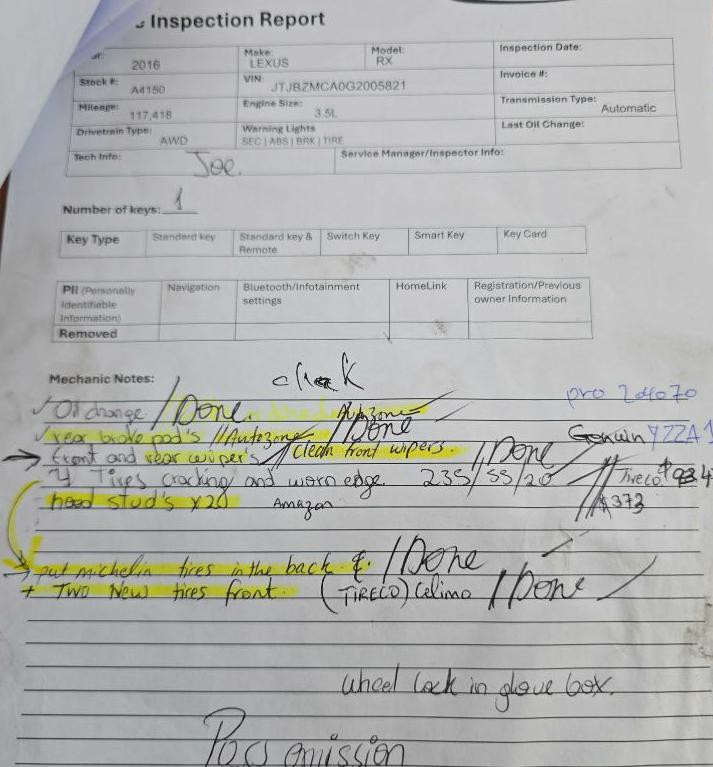 Inspection Report
2016
Make: LEXUS
Model: RX
Inspection Date:
Stock #: A4150
VIN: JTJBZMCA0G2005821
Invoice #:
Mileage: 117,418
Engine Size: 3.5L
Transmission Type: Automatic
Drivetrain Type: AWD
Warning Lights SEC | ABS | BRK | TIRE
Last Oil Change:
Tech Info: Joe.
Service Manager/Inspector Info:
Number of keys: 1
Key Type Standard key Standard key & Remote Switch Key Smart Key Key Card
PII (Personally Identifiable Information) Navigation Bluetooth/Infotainment settings HomeLink Registration/Previous owner Information
Removed
Mechanic Notes:
check
pro 24070
✓ Oil change /Done. Autozone
✓ rear brake pad's //Autozone /Done
Genwin YZZA1
→ front and rear wiper's / Clean front wipers. /Done
4 Tires cracking and worn edge. 235/55/20 // Tireco
need stud's x20 Amazon $373
→ put michelin tires in the back & /Done
+ Two New tires front. (TIRECO) Celimo /Done
wheel lock in glove box.
Pass emission